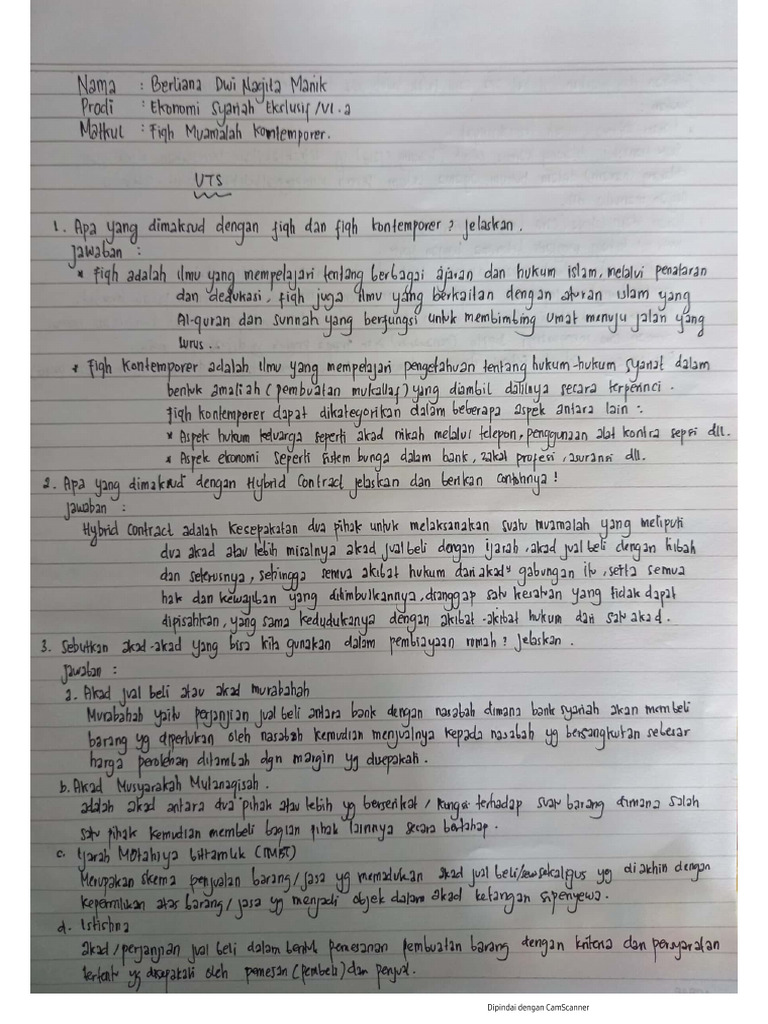 Nama : Berliana Dwi Nagita Manik
Prodi : Ekonomi Syariah Ekslusif /VI.a
Matkul : Fiqh Muamalah Kontemporer.
UTS
1. Apa yang dimaksud dengan fiqh dan fiqh kontemporer ? jelaskan.
Jawaban :
* Fiqh adalah ilmu yang mempelajari tentang berbagai ajaran dan hukum islam, melalui penalaran
dan dedukasi, fiqh juga ilmu yang berkaitan dengan aturan islam yang
Al-quran dan sunnah yang berfungsi untuk membimbing umat menuju jalan yang
lurus ..
* Fiqh Kontemporer adalah ilmu yang mempelajari pengetahuan tentang hukum-hukum syariat dalam
bentuk amaliah (pembuatan mukallaf) yang diambil dalilnya secara terperinci.
Fiqh kontemporer dapat dikategorikan dalam beberapa aspek antara lain :
* Aspek hukum keluarga seperti akad nikah melalui telepon, penggunaan alat kontra sepsi dll.
* Aspek ekonomi seperti sistem bunga dalam bank, zakat profesi, asuransi dll.
2. Apa yang dimaksud dengan Hybrid Contract jelaskan dan berikan contohnya !
Jawaban :
Hybrid Contract adalah kesepakatan dua pihak untuk melaksanakan suatu muamalah yang meliputi
dua akad atau lebih misalnya akad jual beli dengan ijarah, akad jual beli dengan hibah
dan seterusnya, sehingga semua akibat hukum dari akad² gabungan itu, serta semua
hak dan kewajiban yang ditimbulkannya, dianggap satu kesatuan yang tidak dapat
dipisahkan, yang sama kedudukanya dengan akibat-akibat hukum dari satu akad.
3. Sebutkan akad-akad yang bisa kita gunakan dalam pembiayaan rumah ? Jelaskan.
Jawaban :
a. Akad jual beli atau akad murabahah
Murabahah yaitu perjanjian jual beli antara bank dengan nasabah dimana bank syariah akan membeli
barang yg diperlukan oleh nasabah kemudian menjualnya kepada nasabah yg bersangkutan sebesar
harga perolehan ditambah dgn margin yg disepakati.
b. Akad Musyarakah Mutanaqisah.
adalah akad antara dua pihak atau lebih yg berserikat / terhadap suatu barang dimana salah
satu pihak kemudian membeli bagian pihak lainnya secara bertahap.
c. Ijarah (IMBT)
Merupakan skema penjualan barang/jasa yg memadukan akad jual beli/sewa sekaligus yg di akhiri dengan
kepemilikan atas barang/jasa yg menjadi objek dalam akad ketangan sipenyewa.
d. Istishna
akad/perjanjian jual beli dalam bentuk pemesanan pembuatan barang dengan kriteria dan persyaratan
tertentu yg disepakati oleh pemesan (pembeli) dan penjual.
Dipindai dengan CamScanner